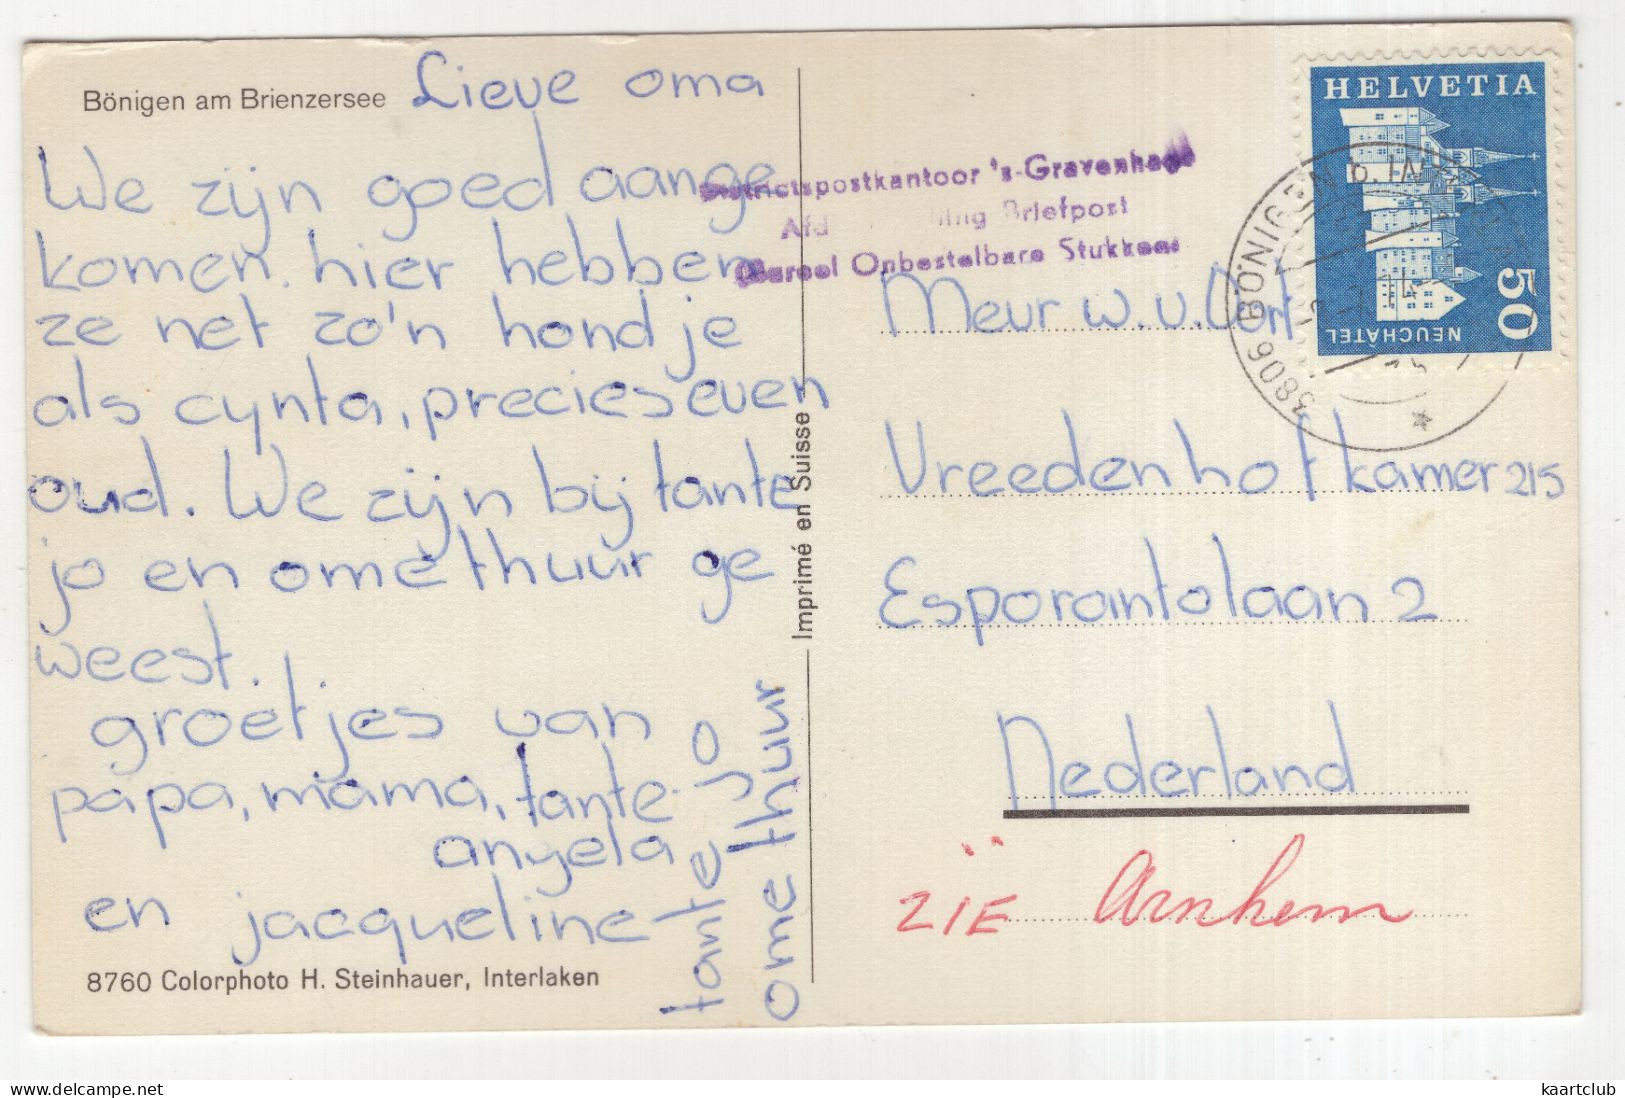 Bönigen am Brienzersee
Lieve oma
We zijn goed aange
komen. hier hebben
ze net zo'n hondje
als cynta, precies even
oud. We zijn bij tante
jo en ome thuur ge
weest.
groetjes van
papa, mama, tante
angela
en jacqueline
tante jo
ome thuur
8760 Colorphoto H. Steinhauer, Interlaken
Imprimé en Suisse
Districtspostkantoor 's-Gravenhage
Briefpost
Onbestelbare Stukken
HELVETIA
50
NEUCHATEL
3806 BÖNIGEN b. 
Meur w. v. Oort
Vreedenhof kamer 215
Esporantolaan 2
Nederland
ZIE Arnhem
kaartclub